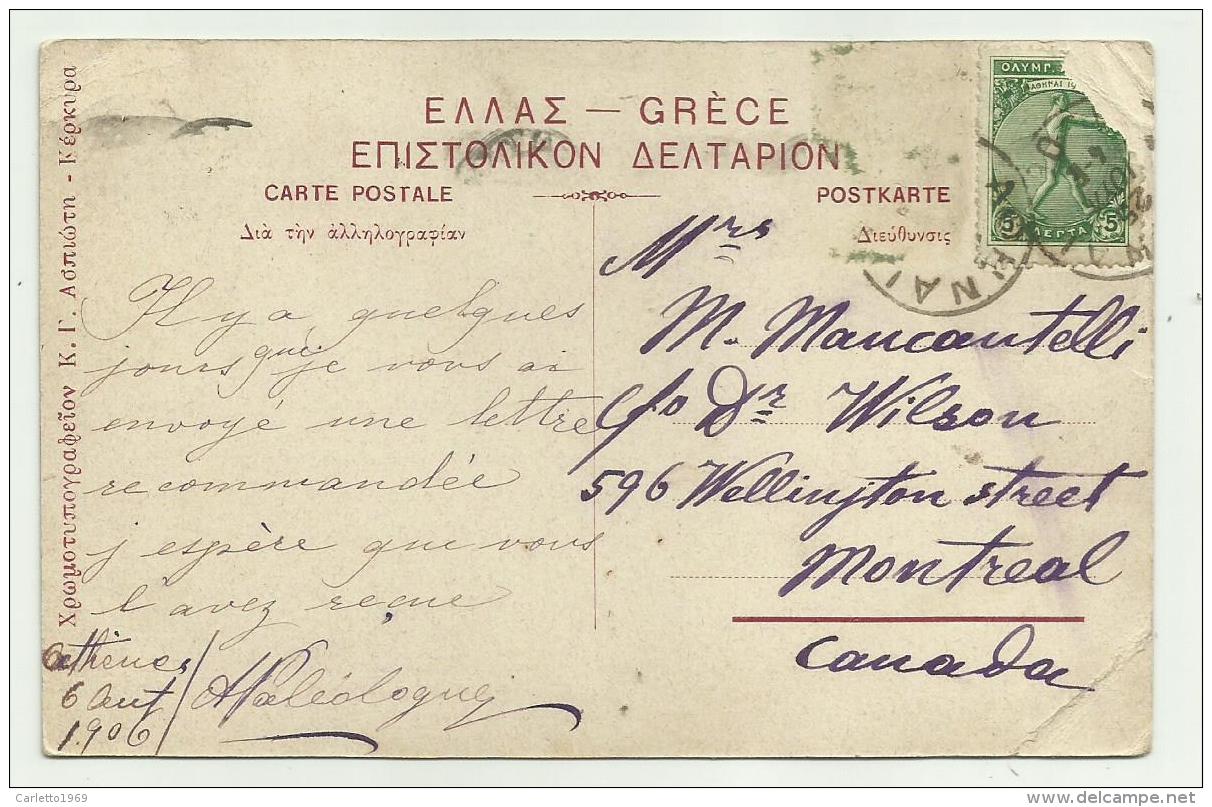 ΕΛΛΑΣ — GRÈCE
ΕΠΙΣΤΟΛΙΚΟΝ ΔΕΛΤΑΡΙΟΝ
CARTE POSTALE
POSTKARTE
Διὰ τὴν ἀλληλογραφίαν
Διεύθυνσις
Χρωμοτυπογραφεῖον Κ. Γ. Ἀσπιώτη - Κέρκυρα
Il y a quelques
jours que je vous ai
envoyé une lettre
recommandée
j espère que vous
l'avez reçue
Athènes
6 Aout
1906
Paléologue
Mrs
M. Mancantelli
c/o Dr Wilson
596 Wellington street
Montreal
Canada
ΟΛΥΜΠ.
ΑΘΗΝΑΙ 19
5 ΛΕΠΤΑ 5
ΑΘΗΝΑΙ
Carletto1969
delcampe.net